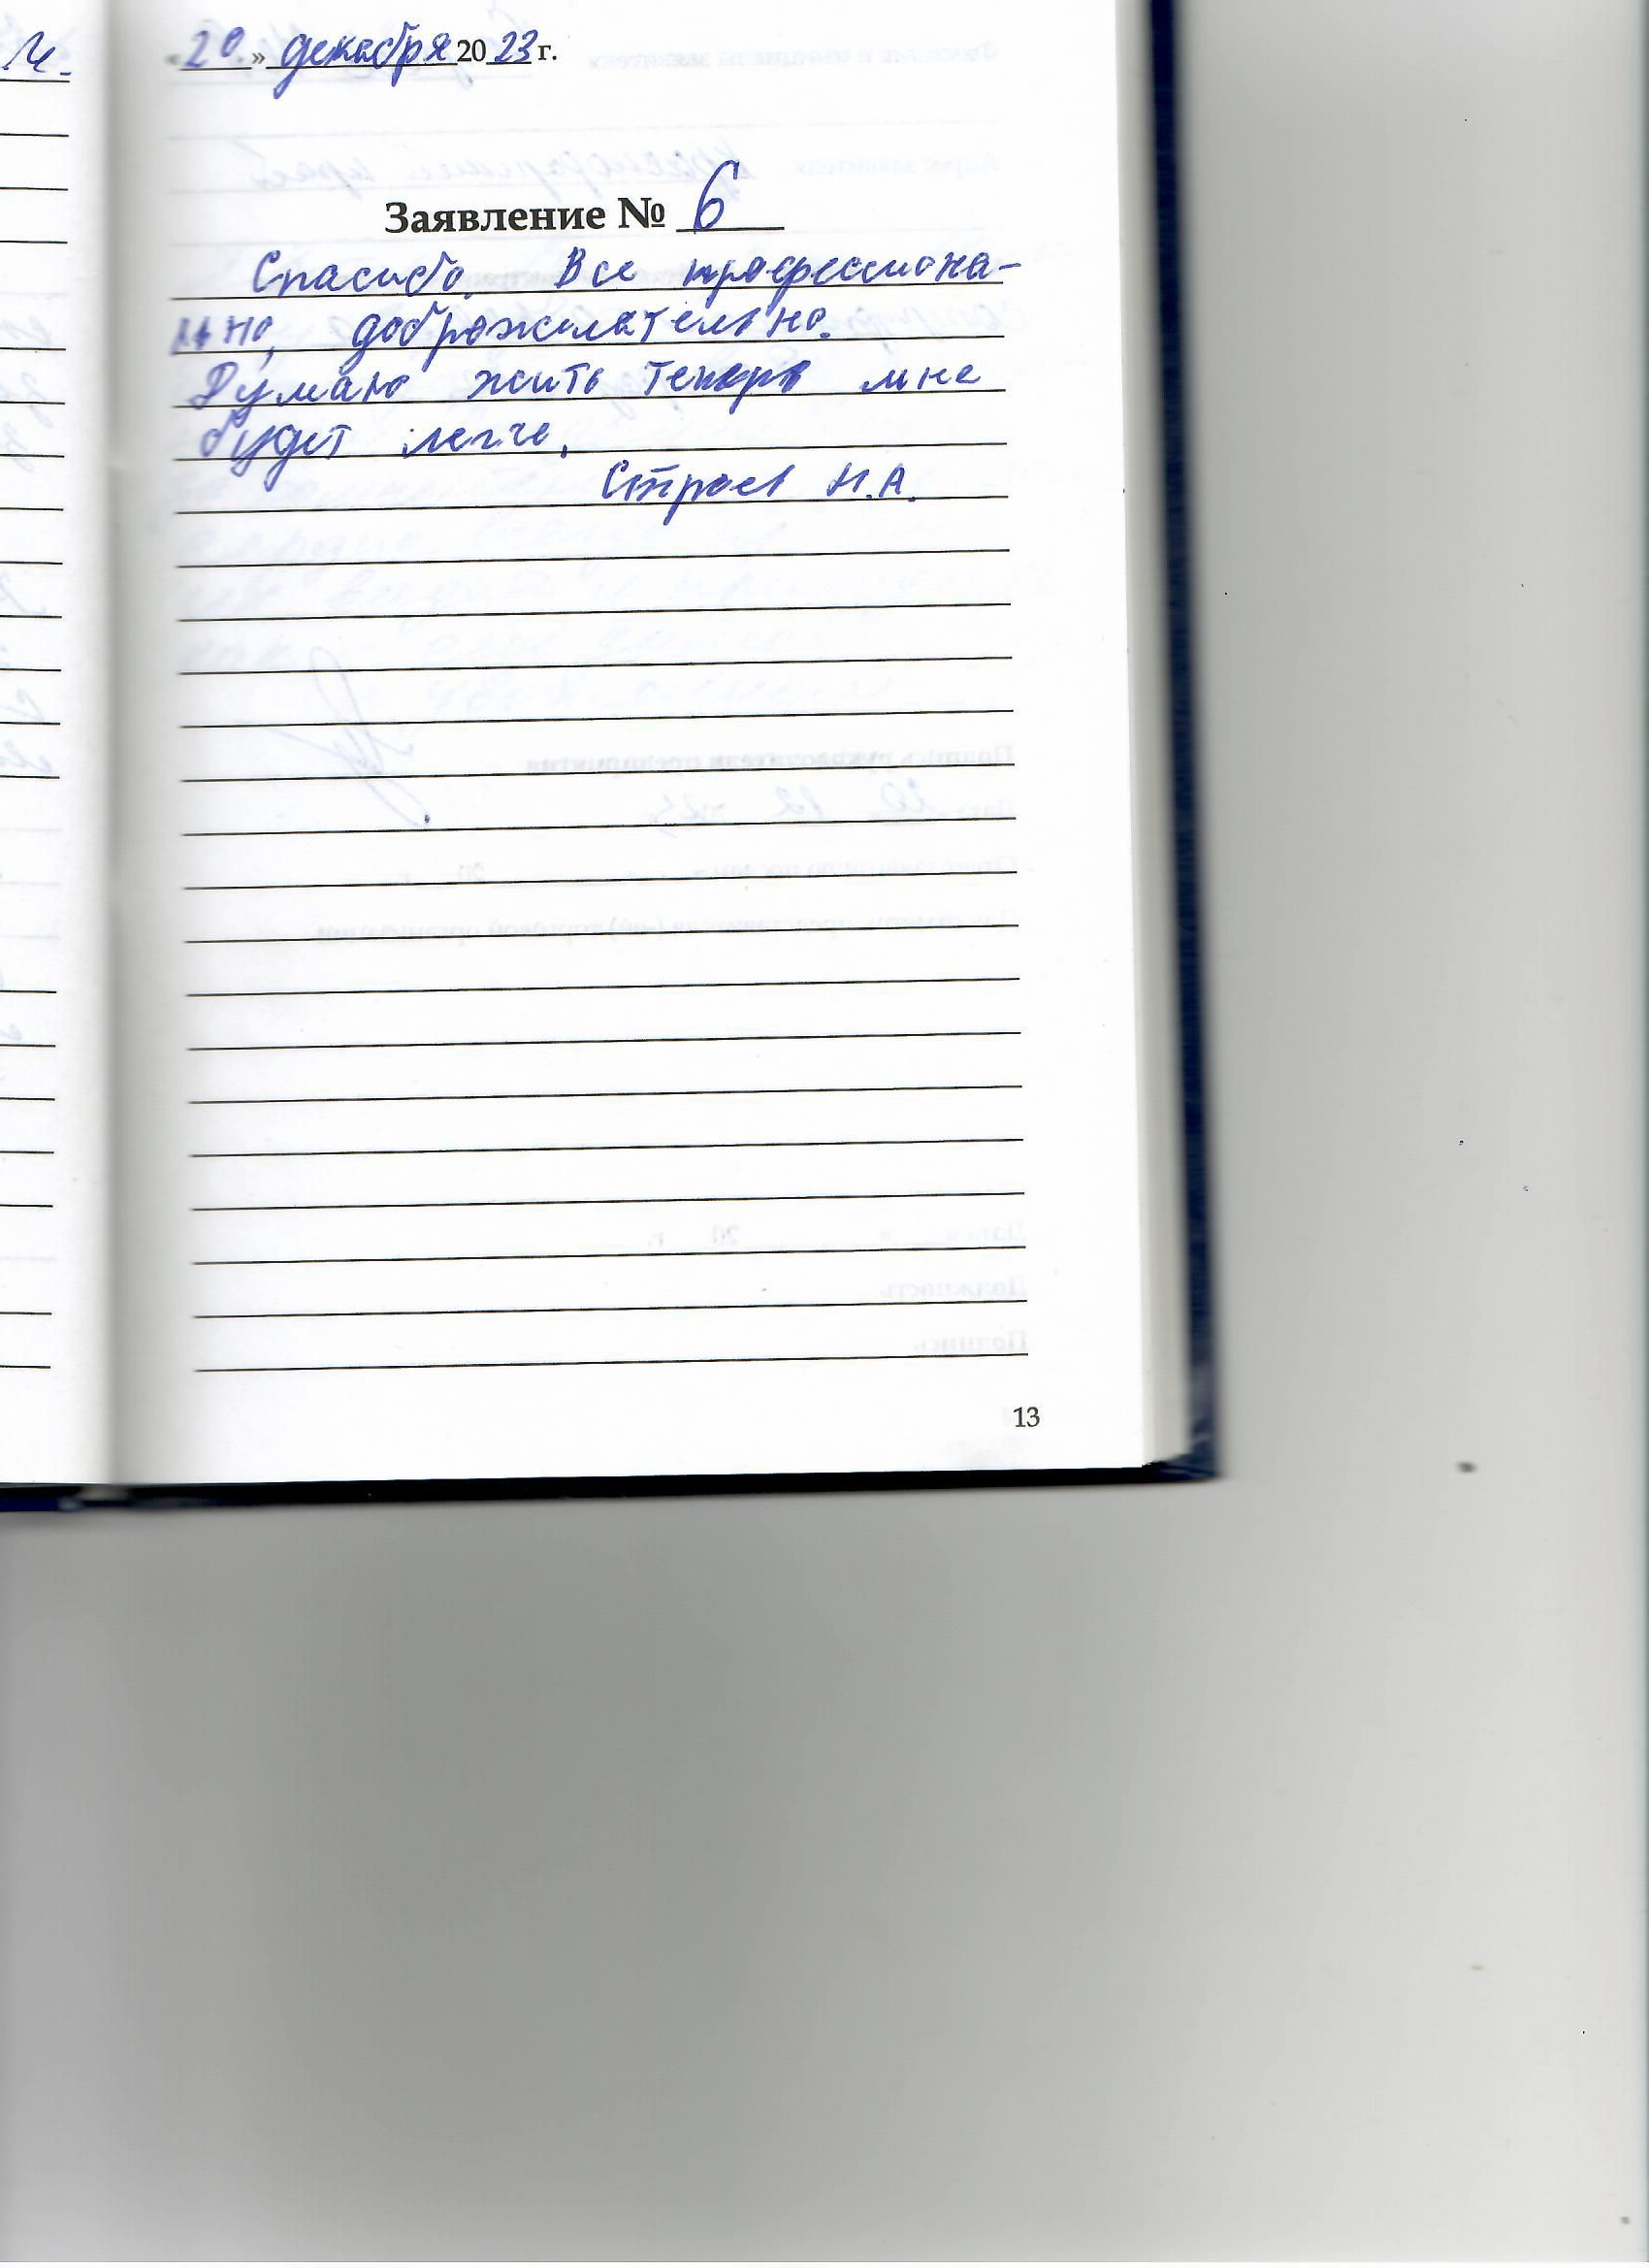 «20» декабря 2023 г.
Заявление № 6
Спасибо. Все профессиона-
льно, доброжелательно.
Думаю жить теперь мне
будет легче.
Н.А.
13